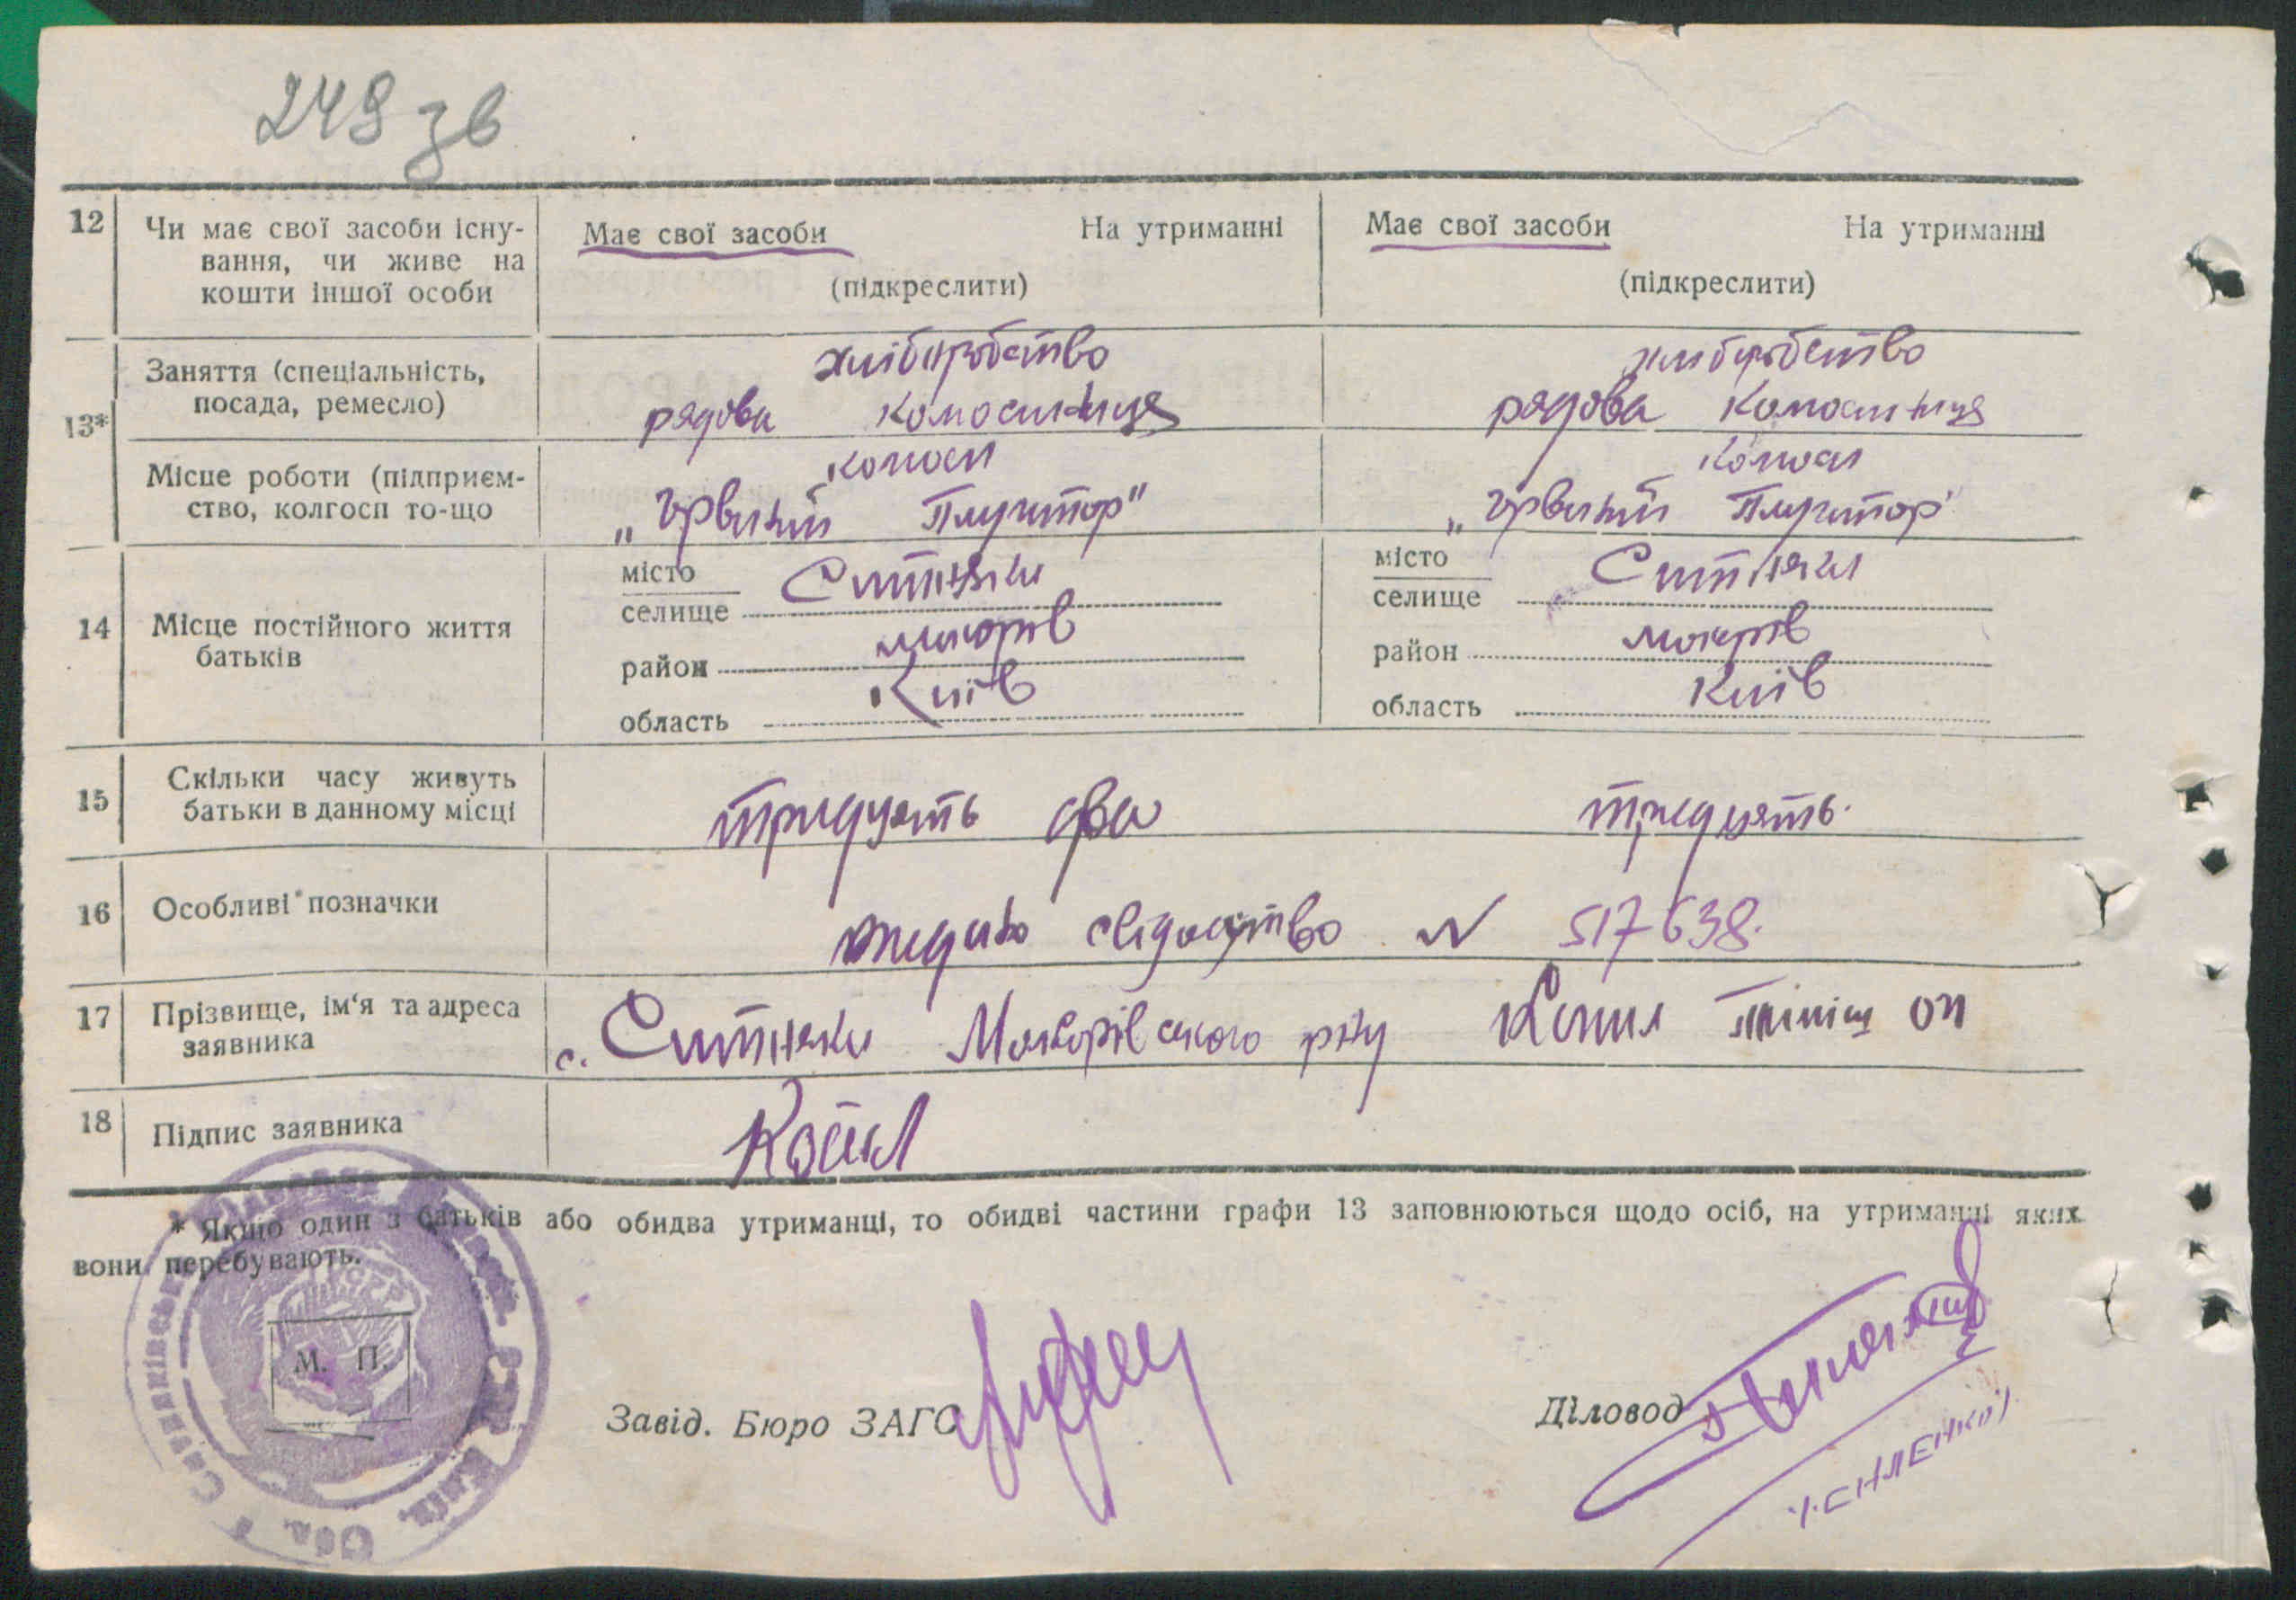 249 зв
12
Чи має свої засоби існу-
вання, чи живе на
кошти іншої особи
Має свої засоби На утриманні
(підкреслити)
Має свої засоби На утриманні
(підкреслити)
13*
Заняття (спеціальність,
посада, ремесло)
хліборобство
рядова
хліборобство
рядова
Місце роботи (підприєм-
ство, колгосп то-що
колгосп
„ Плугатор"
колгосп
„ Плугатор"
14
Місце постійного життя
батьків
місто
селище Ситняки
район Макарів
область Київ
місто
селище Ситняки
район Макарів
область Київ
15
Скільки часу живуть
батьки в данному місці
тридцять два
тридцять
16
Особливі позначки
видано свідоцтво N 517638.
17
Прізвище, ім'я та адреса
заявника
с. Ситняки Макарівського р-ну Копил
18
Підпис заявника
Копил
* Якщо один з батьків або обидва утриманці, то обидві частини графи 13 заповнюються щодо осіб, на утриманні яких
вони перебувають.
М. П.
Завід. Бюро ЗАГС
Діловод